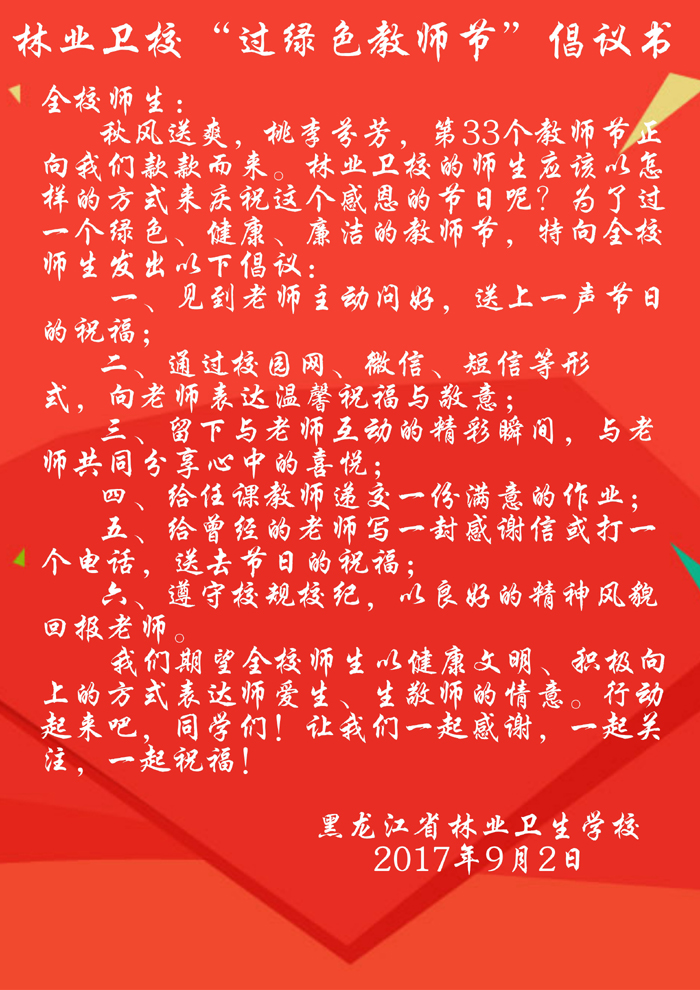 林业卫校“过绿色教师节”倡议书
全校师生：
秋风送爽，桃李芬芳，第33个教师节正
向我们款款而来。林业卫校的师生应该以怎
样的方式来庆祝这个感恩的节日呢？为了过
一个绿色、健康、廉洁的教师节，特向全校
师生发出以下倡议：
一、见到老师主动问好，送上一声节日
的祝福；
二、通过校园网、微信、短信等形
式，向老师表达温馨祝福与敬意；
三、留下与老师互动的精彩瞬间，与老
师共同分享心中的喜悦；
四、给任课教师递交一份满意的作业；
五、给曾经的老师写一封感谢信或打一
个电话，送去节日的祝福；
六、遵守校规校纪，以良好的精神风貌
回报老师。
我们期望全校师生以健康文明、积极向
上的方式表达师爱生、生敬师的情意。行动
起来吧，同学们！让我们一起感谢，一起关
注，一起祝福！
黑龙江省林业卫生学校
2017年9月2日